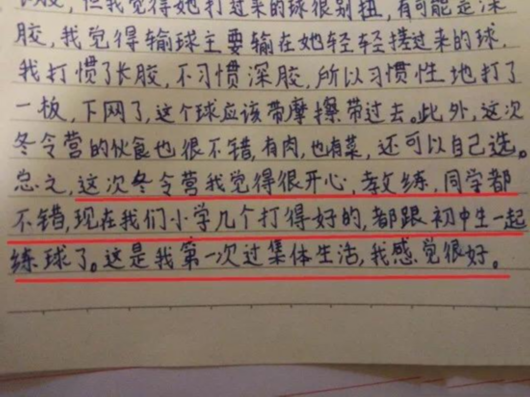 长胶,但我觉得她打过来的球很别扭,有可能是深
胶,我觉得输球主要输在她轻轻搓过来的球,
我打惯了长胶,不习惯深胶,所以习惯性地打了
一板,下网了,这个球应该带摩擦带过去。此外,这次
冬令营的伙食也很不错,有肉,也有菜,还可以自己选。
总之,这次冬令营我觉得很开心,教练,同学都
不错,现在我们小学几个打得好的,都跟初中生一起
练球了。这是我第一次过集体生活,我感觉很好。